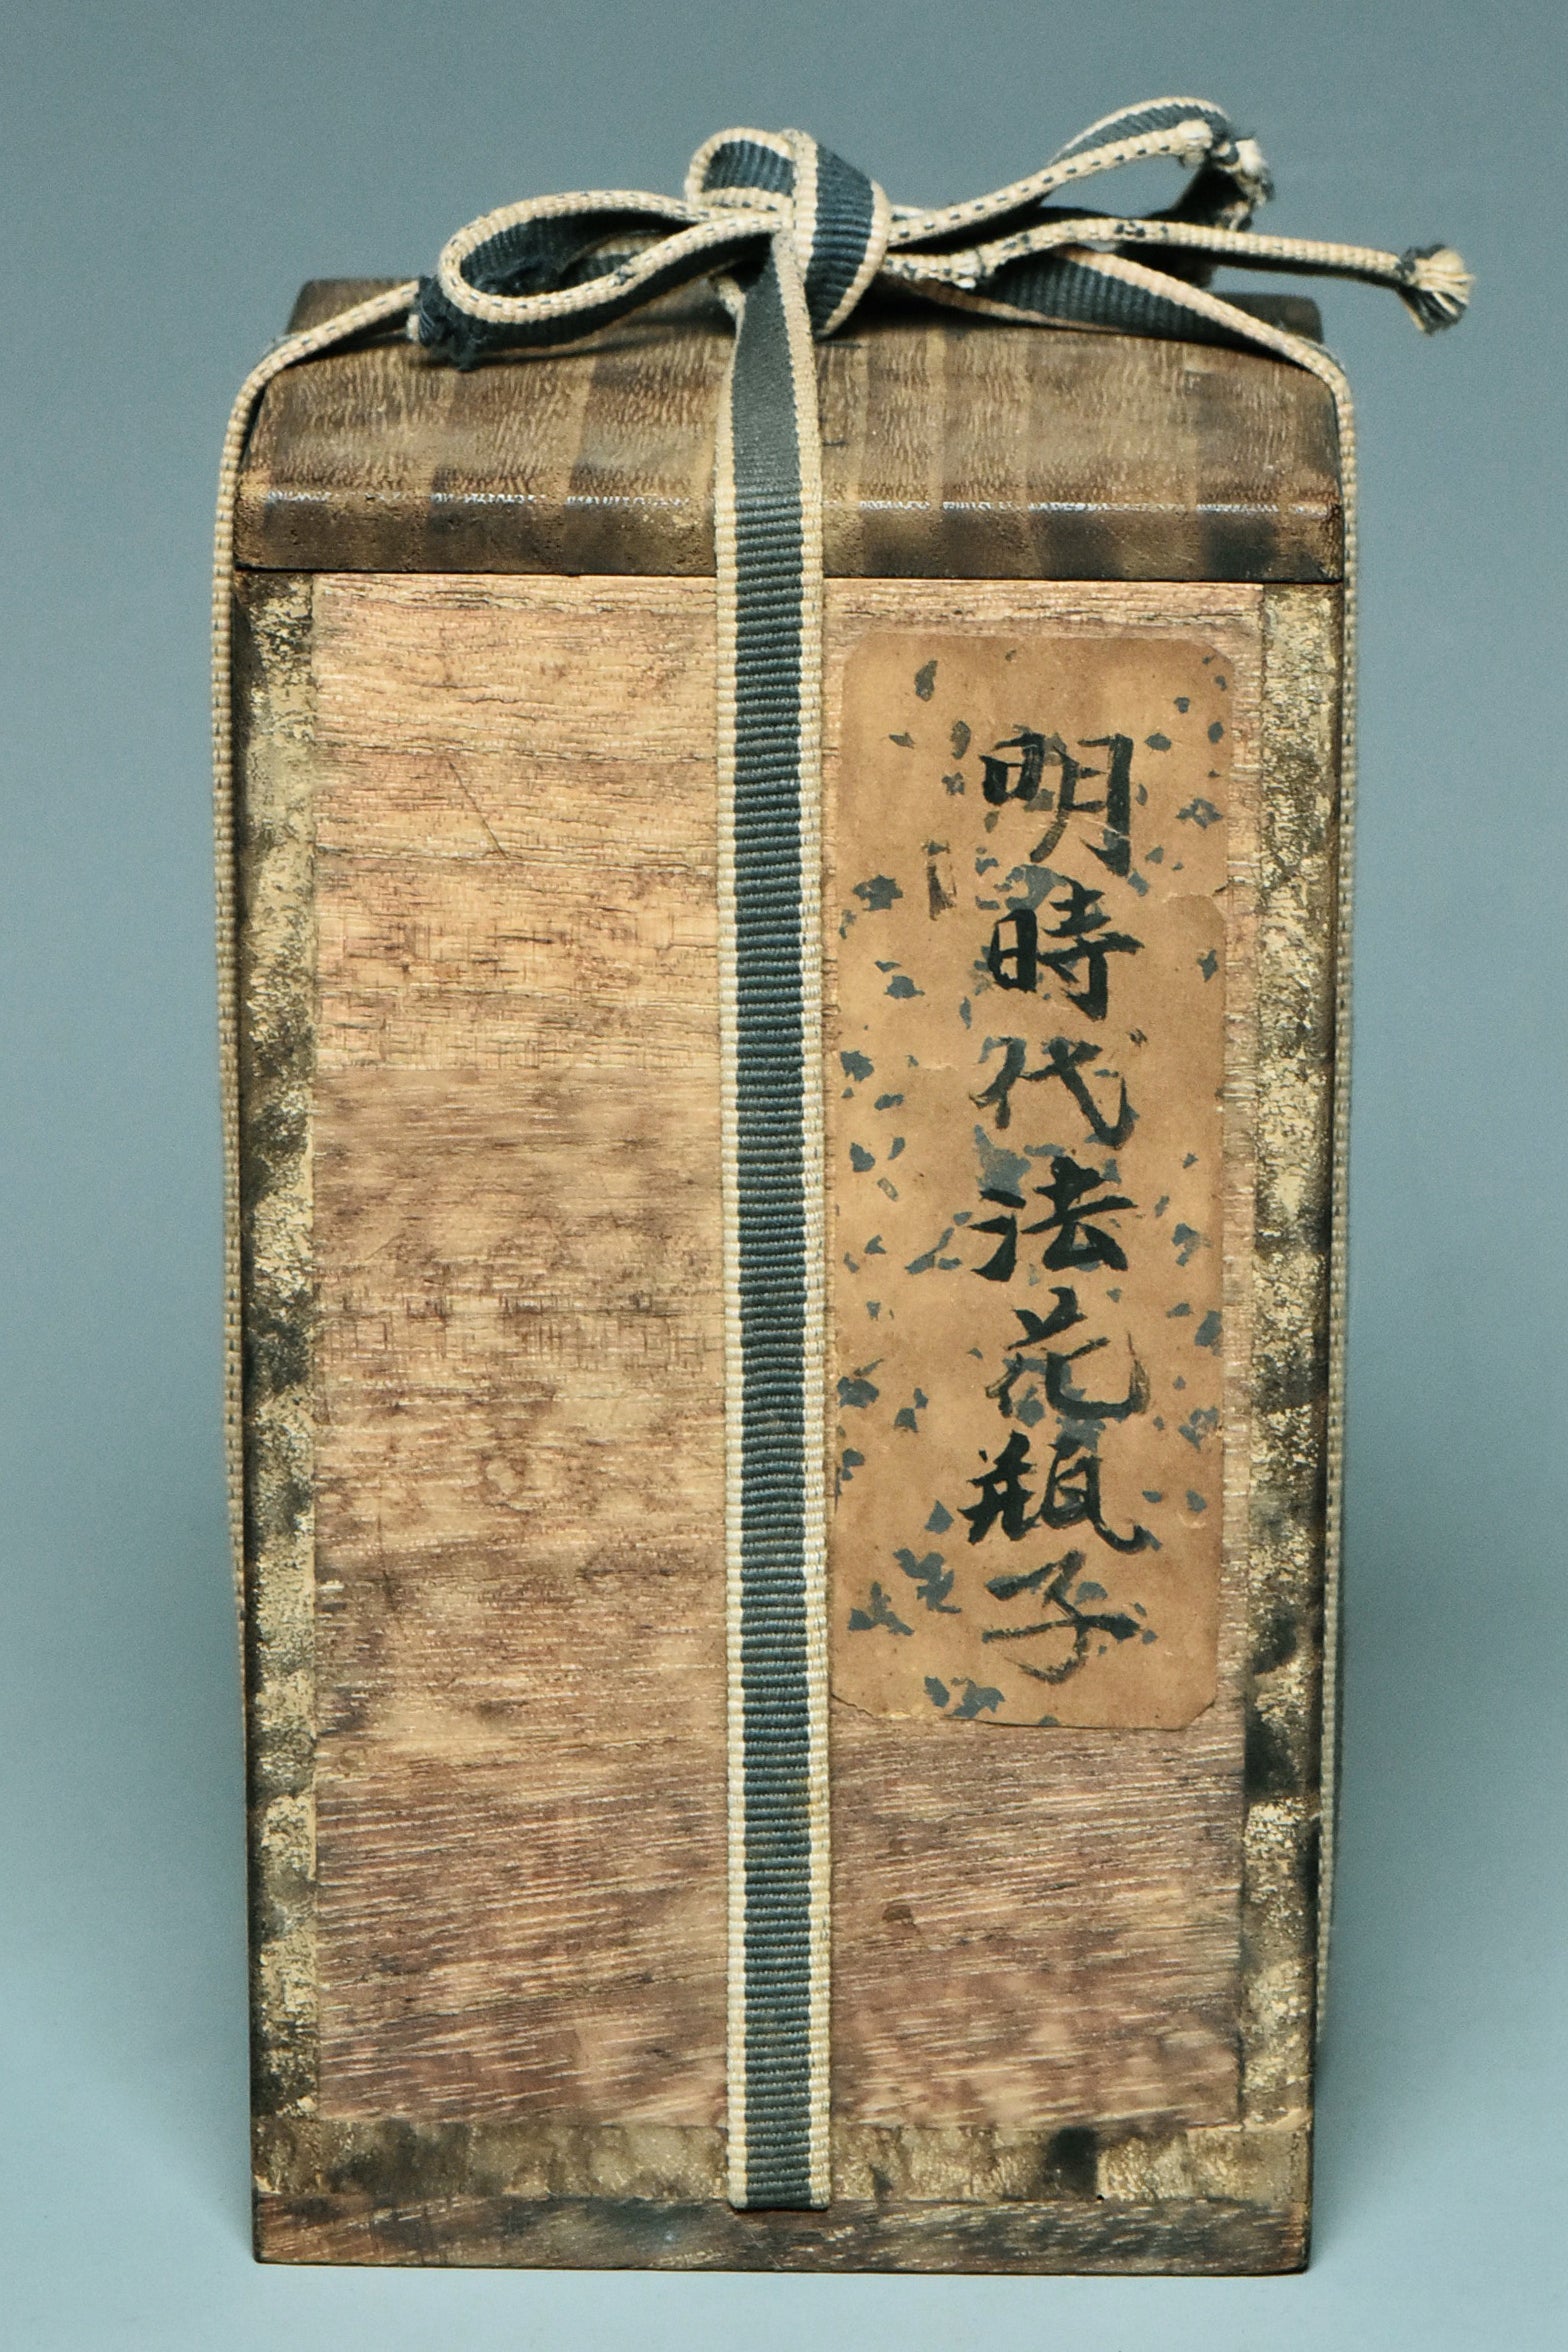 明時代法花瓶子